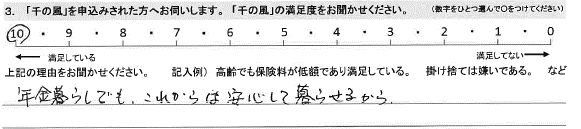 3. 「千の風」を申込みされた方へお伺いします。「千の風」の満足度をお聞かせください。 (数字をひとつ選んで○をつけてください)
10 ・ 9 ・ 8 ・ 7 ・ 6 ・ 5 ・ 4 ・ 3 ・ 2 ・ 1 ・ 0
← 満足している 満足してない →
上記の理由をお聞かせください。 記入例）高齢でも保険料が低額であり満足している。 掛け捨ては嫌いである。 など
年金暮らしでも、これからは安心して暮らせるから